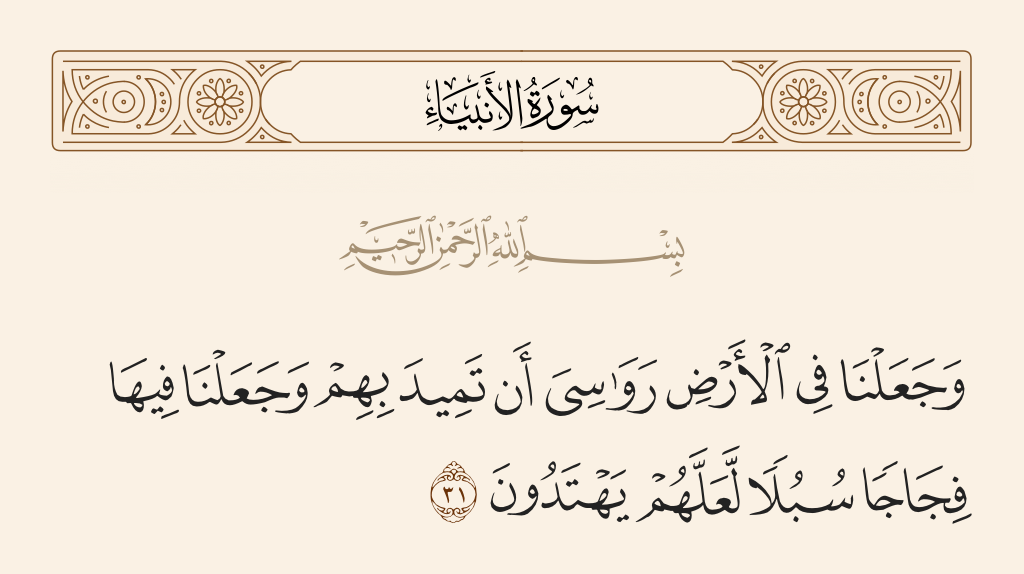 سُورَةُ الأَنبِيَاءِ
بِسْمِ ٱللَّهِ ٱلرَّحْمَٰنِ ٱلرَّحِيمِ
وَجَعَلْنَا فِى ٱلْأَرْضِ رَوَٰسِىَ أَن تَمِيدَ بِهِمْ وَجَعَلْنَا فِيهَا
فِجَاجًا سُبُلًا لَّعَلَّهُمْ يَهْتَدُونَ ٣١